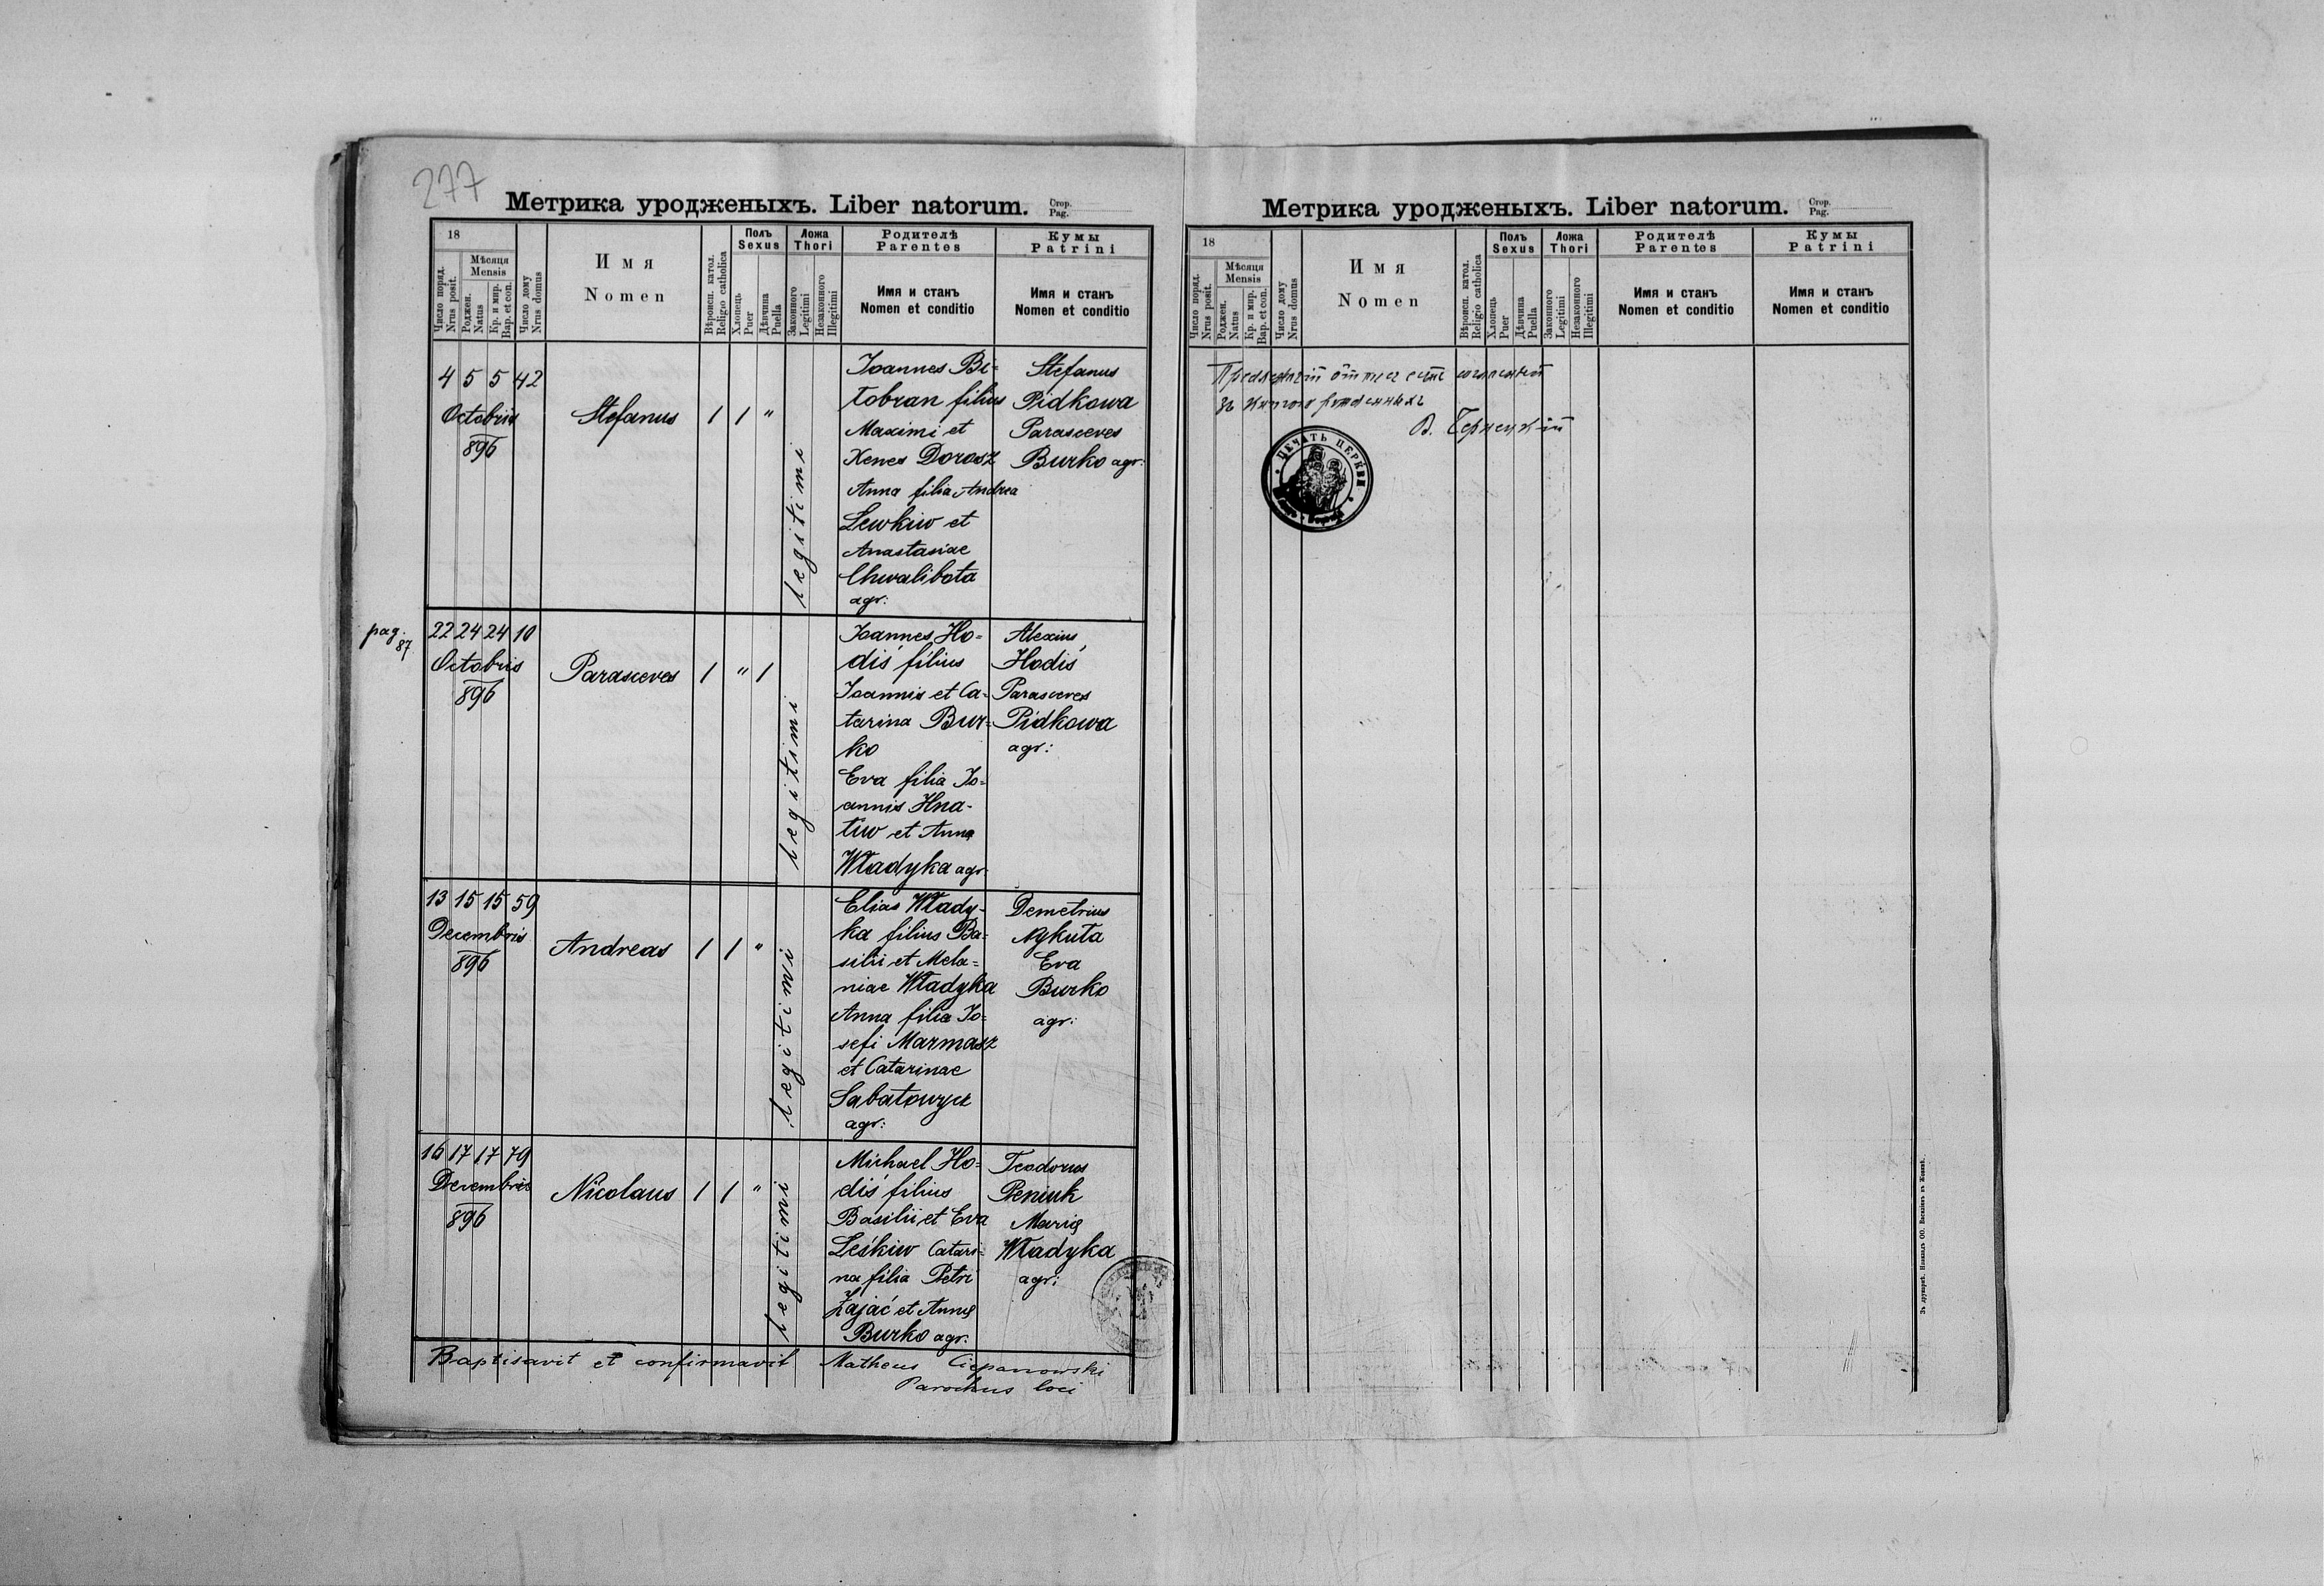 277
Метрика уродженыхъ. Liber natorum. Стор. Pag.
18
Мѣсяця
Mensis
Число поряд.
Nrus posit.
Роджен.
Natus
Кр. и мир.
Bap. et con.
Число дому
Nrus domus
Имя
Nomen
Вѣроисп. катол.
Religio catholica
Полъ
Sexus
Хлопець
Puer
Дѣвчина
Puella
Ложа
Thori
Законного
Legitimi
Незаконного
Illegitimi
Родителѣ
Parentes
Имя и станъ
Nomen et conditio
Кумы
Patrini
Имя и станъ
Nomen et conditio
4 5 5 42
Octobris
896
Stefanus
1 1 "
legitimi
Joannes Bi=
łobran filius
Maximi et
Xenes Dorosz
Anna filia Andrea
Lewkiw et
Anastasiae
Chwalibota
agr:
Stefanus
Pidkowa
Parasceves
Burko agr:
pag.
87
22 24 24 10
Octobris
896
Parasceves
1 " 1
legitimi
Joannes Ho=
diś filius
Joannis et Ca=
tarina Bur=
ko
Eva filia Jo=
annis Hna-
tiw et Anna
Władyka agr.
Alexius
Hodiś
Parasceves
Pidkowa
agr:
13 15 15 59
Decembris
896
Andreas
1 1 "
legitimi
Elias Włady-
ka filius Ba=
silii et Mela=
niae Władyka
Anna filia Jo=
sefi Marmasz
et Catarinae
Sabatowycz
agr:
Demetrius
Nykuta
Eva
Burko
agr:
16 17 17 79
Decembris
896
Nicolaus
1 1 "
legitimi
Michael Ho=
diś filius
Basilii et Eva
Leśkiw Catari=
na filia Petri
Zajać et Anna
Burko agr.
Teodorus
Peniuk
Maria
Władyka
agr:
Baptisavit et confirmavit Matheus Ciepanowski
Parochus loci
Метрика уродженыхъ. Liber natorum. Стор. Pag.
18
Мѣсяця
Mensis
Число поряд.
Nrus posit.
Роджен.
Natus
Кр. и мир.
Bap. et con.
Число дому
Nrus domus
Имя
Nomen
Вѣроисп. катол.
Religio catholica
Полъ
Sexus
Хлопець
Puer
Дѣвчина
Puella
Ложа
Thori
Законного
Legitimi
Незаконного
Illegitimi
Родителѣ
Parentes
Имя и станъ
Nomen et conditio
Кумы
Patrini
Имя и станъ
Nomen et conditio
зъ
В.
ПЕЧАТЬ ЦЕРКВИ